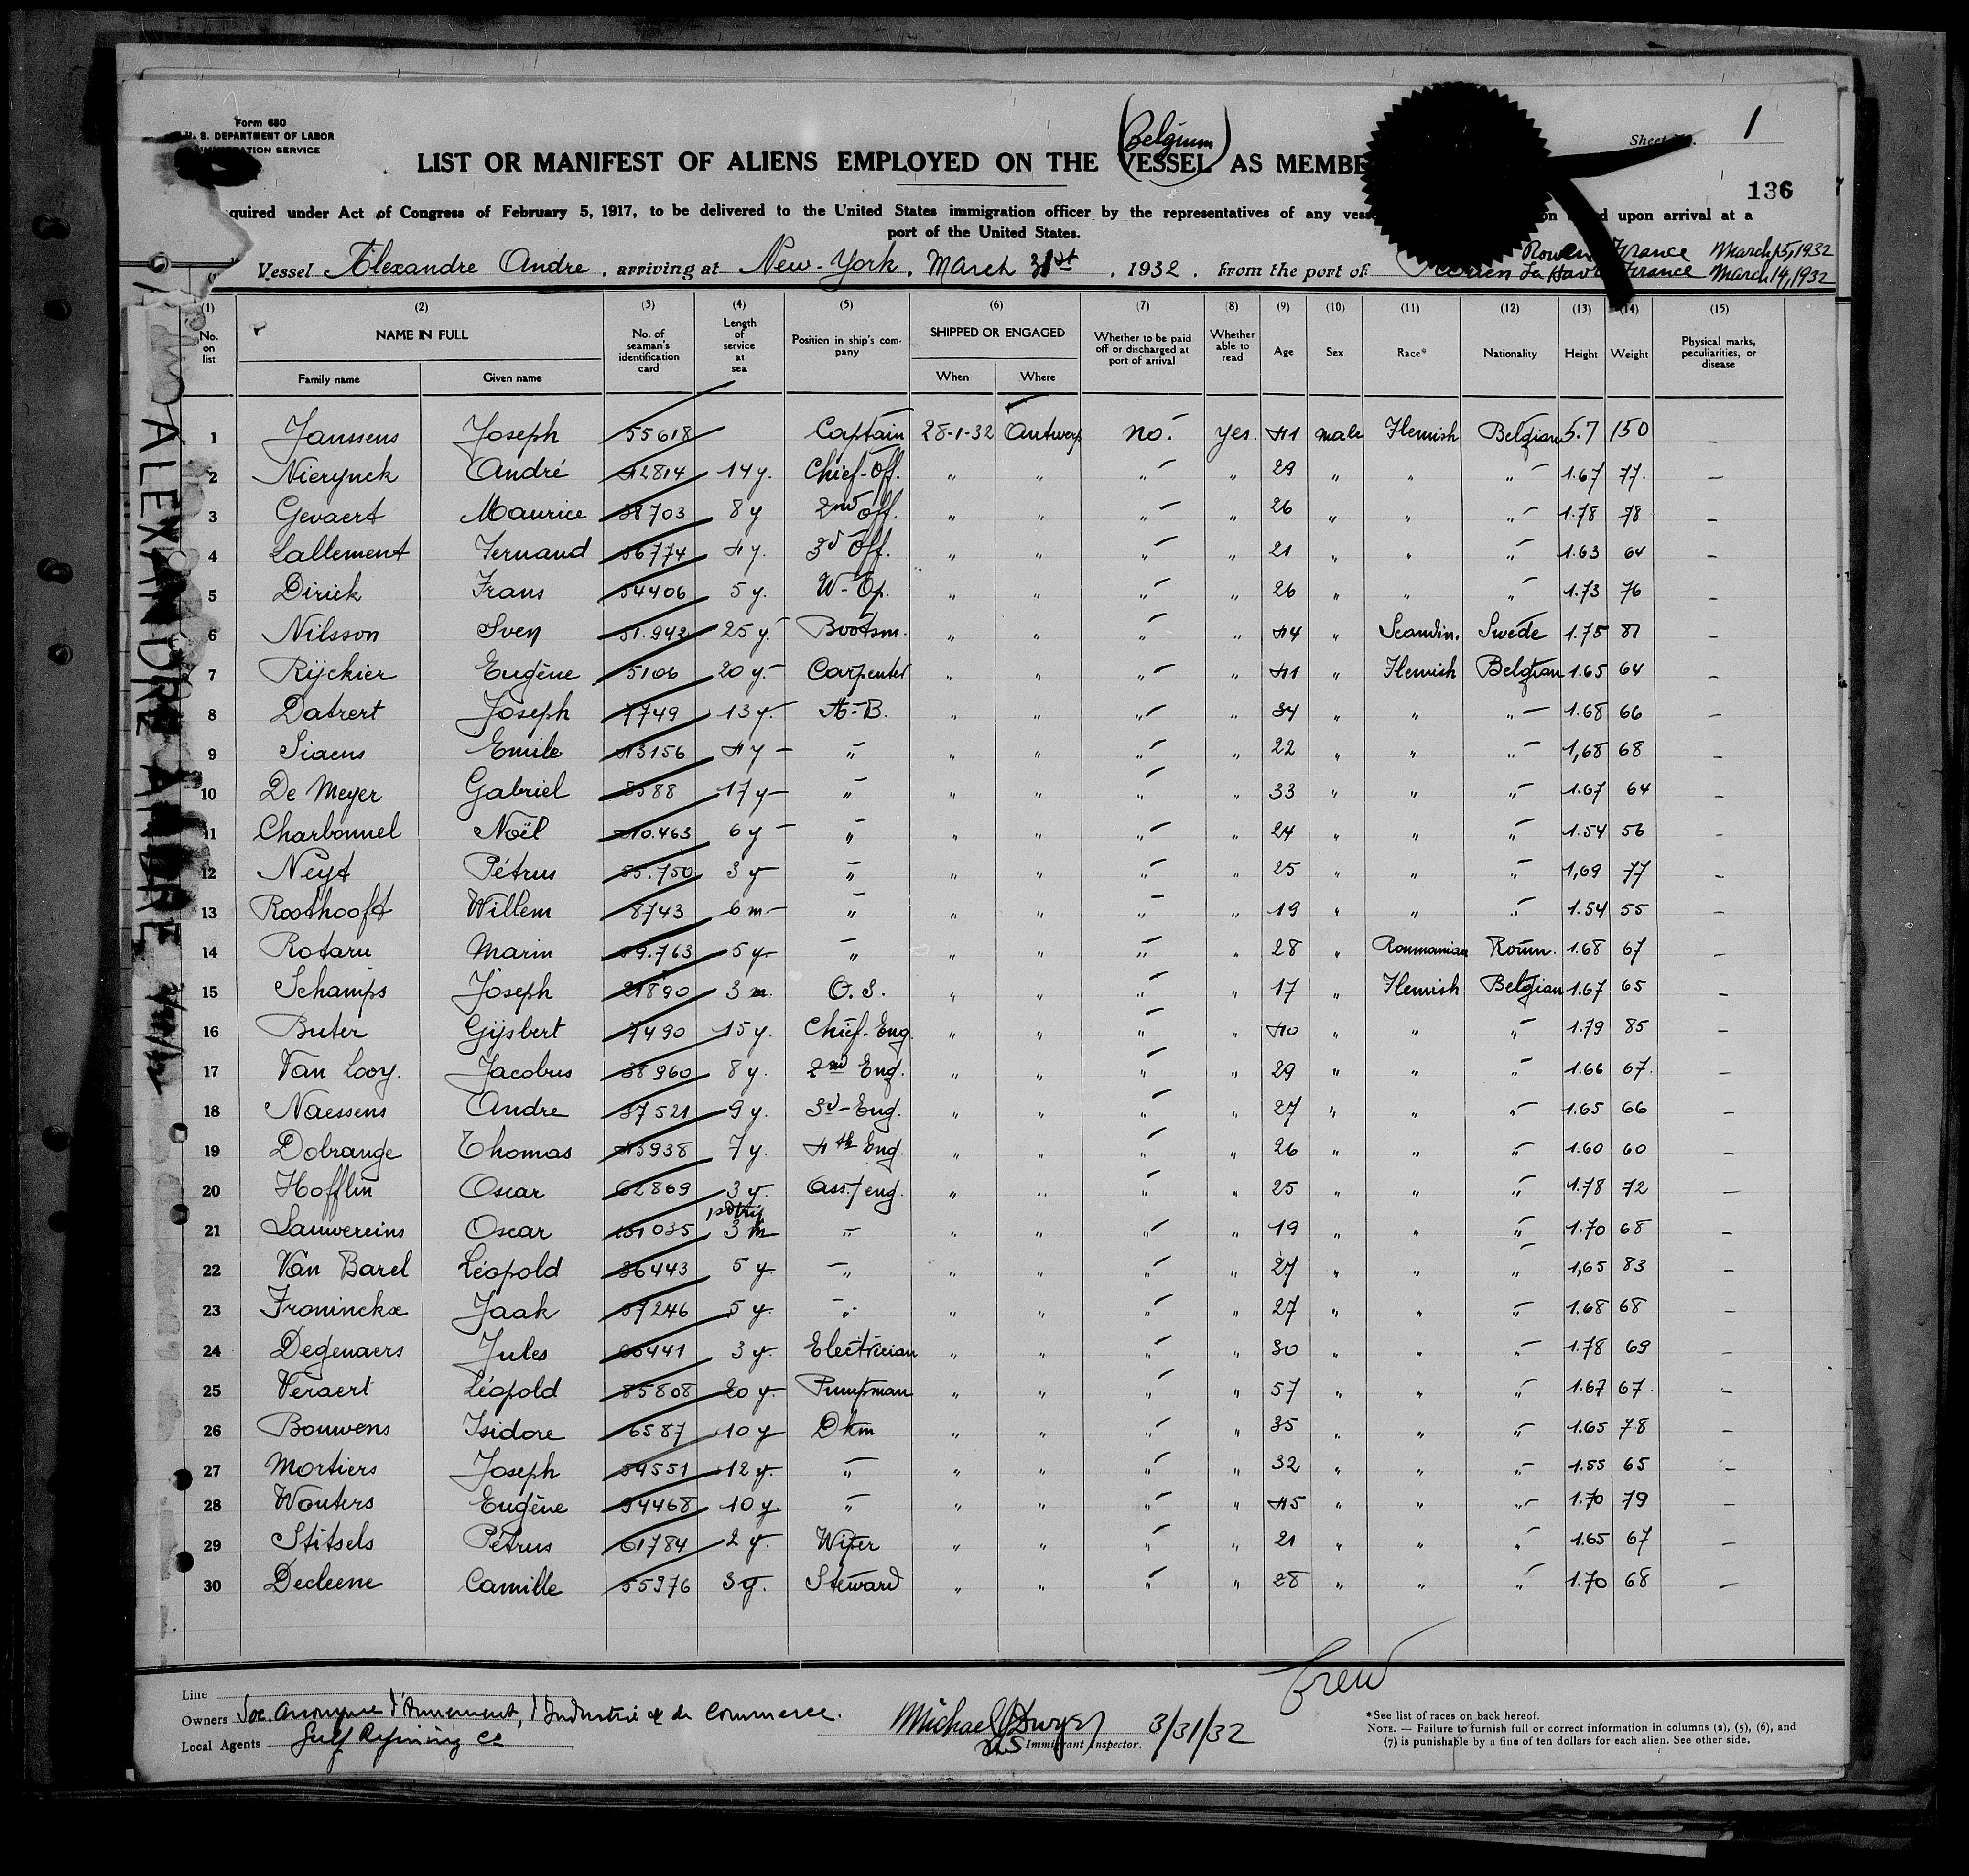 Form 680
U. S. DEPARTMENT OF LABOR
IMMIGRATION SERVICE
(Belgium)
Sheet No. 1
LIST OR MANIFEST OF ALIENS EMPLOYED ON THE VESSEL AS MEMBE
136
quired under Act of Congress of February 5, 1917, to be delivered to the United States immigration officer by the representatives of any vess on upon arrival at a
port of the United States.
Rouen France March 15, 1932
Vessel Alexandre Andre, arriving at New-York, March 31st, 1932, from the port of La Havre France March 14, 1932
ALEXANDRE ANDRE
(1) (2) (3) (4) (5) (6) (7) (8) (9) (10) (11) (12) (13) (14) (15)
No. on list NAME IN FULL No. of seaman's identification card Length of service at sea Position in ship's company SHIPPED OR ENGAGED Whether to be paid off or discharged at port of arrival Whether able to read Age Sex Race* Nationality Height Weight Physical marks, peculiarities, or disease
Family name Given name When Where
1 Janssens Joseph 55618 Captain 28-1-32 Antwerp no. yes. 41 male Flemish Belgian 5.7 150 –
2 Nierynck André 42814 14 y. Chief-Off. " " " " 29 " " " 1.67 77. –
3 Gevaert Maurice 38703 8 y 2nd off. " " " " 26 " " " 1.78 78 –
4 Lallement Fernand 56774 4 y. 3d Off. " " " " 21 " " " 1.63 64 –
5 Dirick Frans 54406 5 y. W-Op. " " " " 26 " " " 1.73 76 –
6 Nilsson Sven 51.942 25 y. Bootsm. " " " " 44 " Scandin. Swede 1.75 81 –
7 Rijckier Eugène 5106 20 y. Carpenter " " " " 41 " Flemish Belgian 1.65 64 –
8 Datrert Joseph 7749 13 y. A-B. " " " " 34 " " " 1.68 66 –
9 Siaens Emile 43156 4 y " " " " " 22 " " " 1,68 68 –
10 De Meyer Gabriel 8588 17 y " " " " " 33 " " " 1.67 64 –
11 Charbonnel Noël 40.463 6 y " " " " " 24 " " " 1.54 56 –
12 Neyt Pétrus 55.750 3 y " " " " " 25 " " " 1,69 77 –
13 Roothooft Willem 8743 6 m. " " " " " 19 " " " 1.54 55 –
14 Rotaru Marin 59.763 5 y. " " " " " 28 " Roumanian Roum. 1.68 67 –
15 Schamps Joseph 21890 3 m. O. S. " " " " 17 " Flemish Belgian 1.67 65 –
16 Buter Gijsbert 7490 15 y. Chief-Eng. " " " " 40 " " " 1.79 85 –
17 Van Looy. Jacobus 38960 8 y. 2nd Eng. " " " " 29 " " " 1.66 67. –
18 Naessens Andre 37521 9 y. 3d-Eng. " " " " 27 " " " 1.65 66 –
19 Dobrange Thomas 43938 7 y. 4th Eng. " " " " 26 " " " 1.60 60 –
20 Hofflin Oscar 62869 3 y. Ass./eng. " " " " 25 " " " 1.78 72 –
1st trip
21 Lauwereins Oscar 3 m " " " " " 19 " " " 1.70 68 –
22 Van Barel Léopold 36443 5 y. " " " " " 27 " " " 1,65 83 –
23 Franinckx Jaak 57246 5 y. " " " " " 27 " " " 1.68 68 –
24 Degenaers Jules 66441 3 y. Electrician " " " " 30 " " " 1.78 69 –
25 Veraert Léopold 85808 20 y. Pumpman " " " " 57 " " " 1.67 67. –
26 Bouwens Isidore 6587 10 y Dkm " " " " 35 " " " 1.65 78 –
27 Mortiers Joseph 59551 12 y. " " " " " 32 " " " 1.55 65 –
28 Wouters Eugène 54468 10 y. " " " " " 45 " " " 1.70 79 –
29 Stitsels Pétrus 61784 2 y. Wiper " " " " 21 " " " 1.65 67 –
30 Decleene Camille 55376 3 y. Steward " " " " 28 " " " 1.70 68 –
Crew
Line
Owners Soc. Anonyme d'Armement, d'Industrie & de Commerce.
Local Agents Gulf Refining Co
Michael J Dwyer 3/31/32
Immigrant Inspector.
*See list of races on back hereof.
NOTE. — Failure to furnish full or correct information in columns (2), (5), (6), and
(7) is punishable by a fine of ten dollars for each alien. See other side.